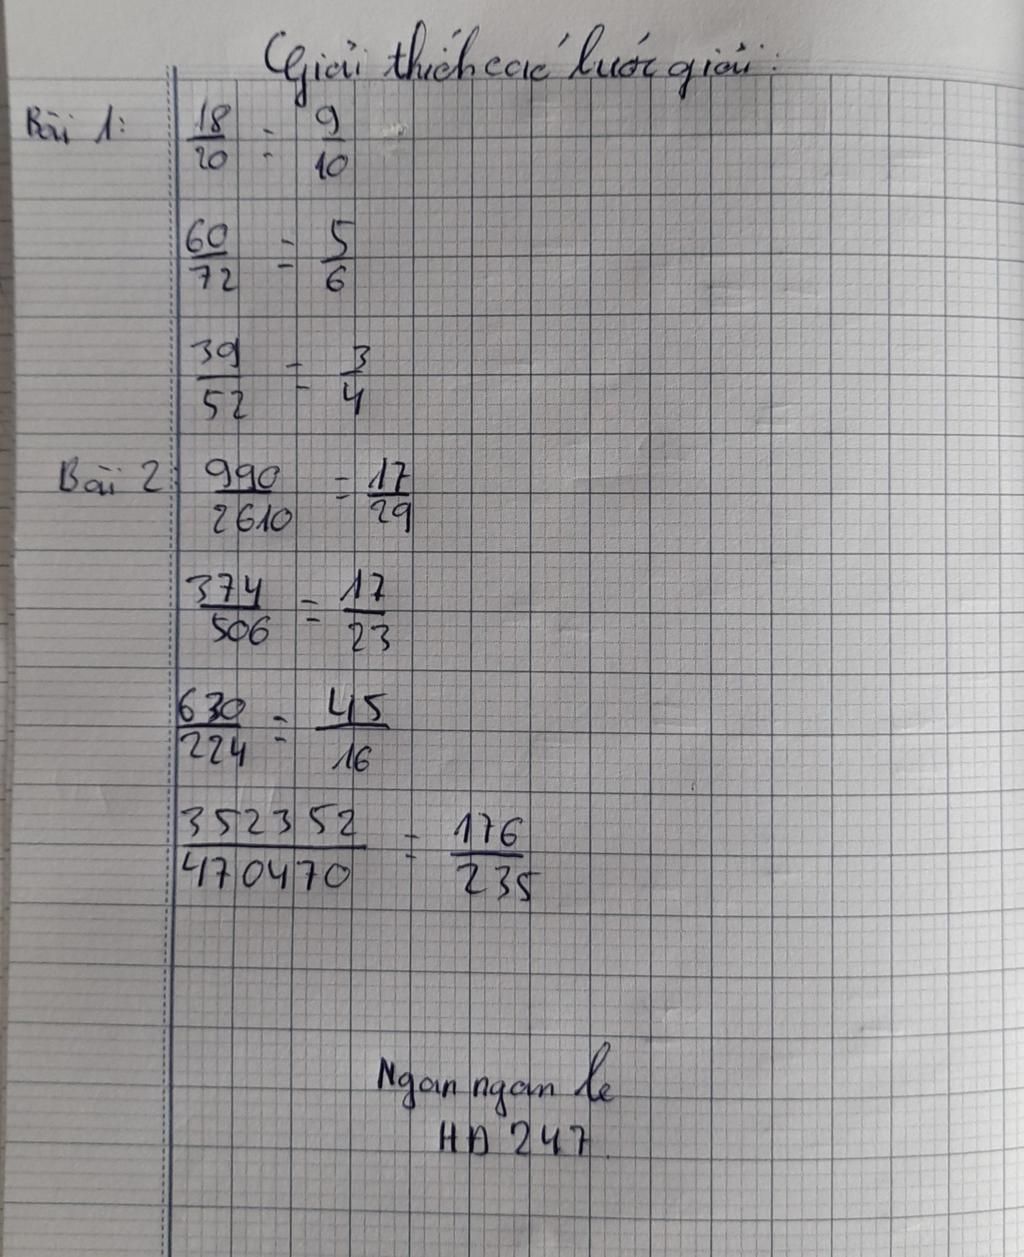 Giải thích các bước giải:
Bài 1: 18/20 = 9/10
60/72 = 5/6
39/52 = 3/4
Bài 2: 990/2610 = 17/29
374/506 = 17/23
630/224 = 45/16
352352/470470 = 176/235
Ngan ngan le
HD 247